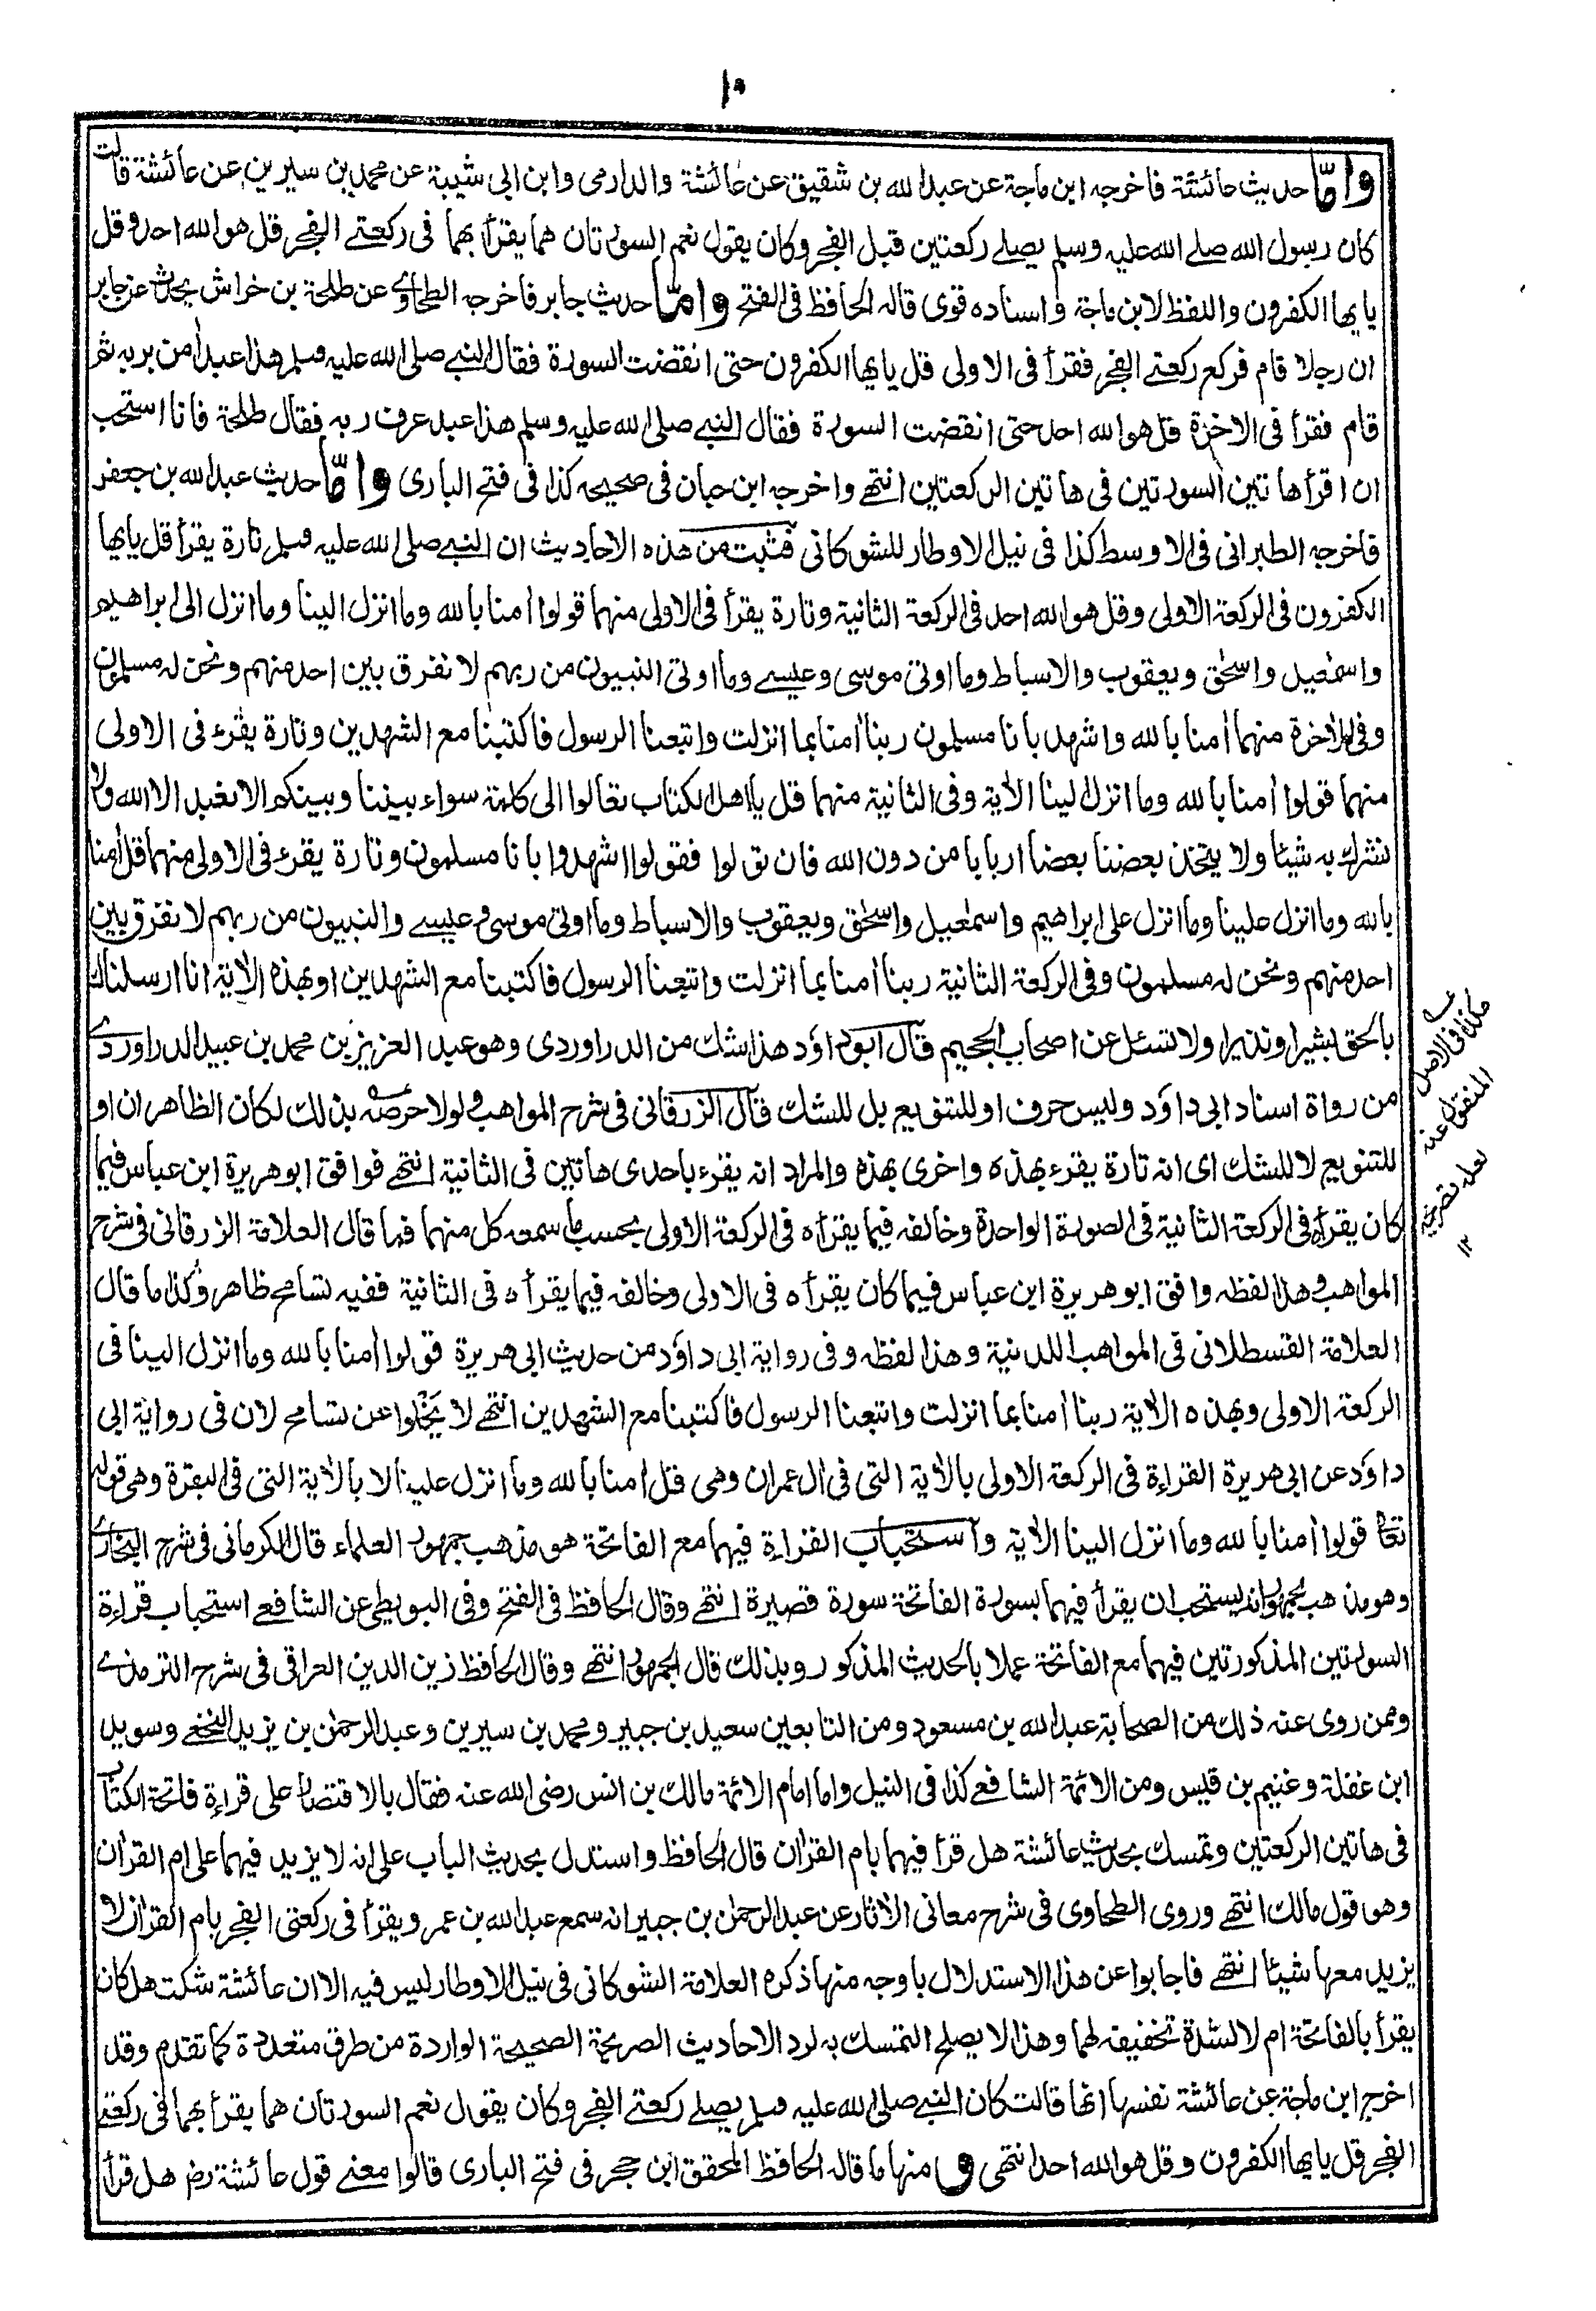 ١٥
واما حديث عائشة فاخرجه ابن ماجة عن عبد الله بن شقيق عن عائشة والدارمى وابن ابى شيبة عن محمد بن سيرين عن عائشة قالت
كان رسول الله صلے الله عليه وسلم يصلے ركعتين قبل الفجر وكان يقول نعم السورتان هما يقرأ بهما فى ركعتے الفجر قل هو الله احد وقل
يايها الكفرون واللفظ لابن ماجة واسناده قوى قاله الحافظ فى الفتح واما حديث جابر فاخرجه الطحاوے عن طلحة بن خراش يحدث عن جابر
ان رجلا قام فركع ركعتے الفجر فقرأ فى الاولى قل يايها الكفرون حتى انقضت السورة فقال النبے صلى الله عليه وسلم هذا عبد اٰمن بربه ثم
قام فقرأ فى الاخرة قل هو الله احد حتى انقضت السورة فقال النبے صلى الله عليه وسلم هذا عبد عرف ربه فقال طلحة فانا استحب
ان اقرأ هاتين السورتين فى هاتين الركعتين انتهے واخرجه ابن حبان فى صحيحه كذا فى فتح البارى واما حديث عبد الله بن جعفر
فاخرجه الطبرانى فى الاوسط كذا فى نيل الاوطار للشوكانى فثبت من هذه الاحاديث ان النبے صلى الله عليه وسلم تارة يقرأ قل يايها
الكفرون فى الركعة الاولى وقل هو الله احد فى الركعة الثانية وتارة يقرأ فى الاولى منهما قولوا اٰمنا بالله وما انزل الينا وما انزل الى ابراهيم
واسمٰعيل واسحٰق ويعقوب والاسباط وما اوتى موسى وعيسے وما اوتى النبيون من ربهم لا نفرق بين احد منهم ونحن له مسلمون
وفى الاٰخرة منهما اٰمنا بالله واشهد بانا مسلمون ربنا اٰمنا بما انزلت واتبعنا الرسول فاكتبنا مع الشهدين وتارة يقرء فى الاولى
منهما قولوا اٰمنا بالله وما انزل الينا الاٰية وفى الثانية منهما قل يااهل الكتاب تعالوا الى كلمة سواء بيننا وبينكم الا نعبد الا الله ولا
نشرك به شيئا ولا يتخذ بعضنا بعضا اربابا من دون الله فان تولوا فقولوا اشهدوا بانا مسلمون وتارة يقرء فى الاولى منهما قل اٰمنا
بالله وما انزل علينا وما انزل على ابراهيم واسمٰعيل واسحٰق ويعقوب والاسباط وما اوتى موسى وعيسے والنبيون من ربهم لا نفرق بين
احد منهم ونحن له مسلمون وفى الركعة الثانية ربنا اٰمنا بما انزلت واتبعنا الرسول فاكتبنا مع الشهدين او بهذه الاٰية انا ارسلناك
بالحق بشيرا ونذيرا ولا تسئل عن اصحاب الجحيم قال ابوداؤد هذا شك من الدراوردى وهو عبد العزيز بن محمد بن عبيد الدراوردے
من رواة اسناد ابى داؤد وليس حرف او للتنويع بل للشك قال الزرقانى فى شرح المواهب ولولا حرصه بذلك لكان الظاهر ان او
للتنويع لا للشك اى انه تارة يقرء بهذه واخرى بهذه والمراد انه يقرء باحدى هاتين فى الثانية انتهے فوافق ابو هريرة ابن عباس فيما
كان يقرأه فى الركعة الثانية فى الصورة الواحدة وخالفه فيما يقرأه فى الركعة الاولى بحسب ما سمعه كل منهما فما قال العلامة الزرقانى فى شرح
المواهب وهذا لفظه وافق ابو هريرة ابن عباس فيما كان يقرأه فى الاولى وخالفه فيما يقرأه فى الثانية ففيه تسامح ظاهر وكذا ما قال
العلامة القسطلانى فى المواهب اللدنية وهذا لفظه وفى رواية ابى داؤد من حديث ابى هريرة قولوا اٰمنا بالله وما انزل الينا فى
الركعة الاولى وبهذه الاٰية ربنا اٰمنا بما انزلت واتبعنا الرسول فاكتبنا مع الشهدين انتهے لا يخلوا عن تسامح لان فى رواية ابى
داؤد عن ابى هريرة القراءة فى الركعة الاولى بالاٰية التى فى اٰل عمران وهى قل اٰمنا بالله وما انزل علينا لا بالاٰية التى فى البقرة وهى قوله
تعالى قولوا اٰمنا بالله وما انزل الينا الاٰية واستحباب القراءة فيهما مع الفاتحة هو مذهب جمهور العلماء قال الكرمانى فى شرح البخارى
وهو مذهب الجمهور انه يستحب ان يقرأ فيهما بسورة الفاتحة سورة قصيرة انتهے وقال الحافظ فى الفتح وفى البويطى عن الشافعے استحباب قراءة
السورتين المذكورتين فيهما مع الفاتحة عملا بالحديث المذكور وبذلك قال الجمهور انتهے وقال الحافظ زين الدين العراقى فى شرح الترمذے
وممن روى عنه ذٰلك من الصحابة عبد الله بن مسعود ومن التابعين سعيد بن جبير ومحمد بن سيرين وعبد الرحمٰن بن يزيد النخعے وسويد
ابن غفلة وغنيم بن قيس ومن الائمة الشافعے كذا فى النيل واما امام الائمة مالك بن انس رضى الله عنه فقال بالاقتصار على قراءة فاتحة الكتاب
فى هاتين الركعتين وتمسك بحديث عائشة هل قرأ فيهما بام القراٰن قال الحافظ واستدل بحديث الباب على انه لا يزيد فيهما على ام القراٰن
وهو قول مالك انتهے وروى الطحاوى فى شرح معانى الاٰثار عن عبد الرحمٰن بن جبير انه سمع عبد الله بن عمرو يقرأ فى ركعتى الفجر بام القراٰن لا
يزيد معها شيئا انتهے فاجابوا عن هذا الاستدلال باوجه منها ذكره العلامة الشوكانى فى نيل الاوطار ليس فيه الا ان عائشة شكت هل كان
يقرأ بالفاتحة ام لا لشدة تخفيفه لهما وهذا لا يصلح التمسك به لرد الاحاديث الصريحة الصحيحة الواردة من طرق متعددة كما تقدم وقد
اخرج ابن ماجة عن عائشة نفسها انها قالت كان النبے صلى الله عليه وسلم يصلے ركعتے الفجر وكان يقول نعم السورتان هما يقرأ بهما فى ركعتے
الفجر قل يايها الكفرون وقل هو الله احد انتهى و منها ما قاله الحافظ المحقق ابن حجر فى فتح البارى قالوا معنے قول عائشة رضـ هل قرأ
هكذا فى الاصل
المنقول عنه
لعله تصريحه
١٢